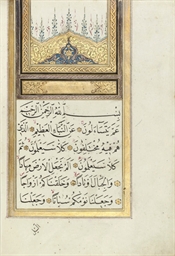 بِسْمِ اللَّهِ الرَّحْمَٰنِ الرَّحِيمِ
عَمَّ يَتَسَاءَلُونَ عَنِ النَّبَإِ الْعَظِيمِ الَّذِي
هُمْ فِيهِ مُخْتَلِفُونَ كَلَّا سَيَعْلَمُونَ ثُمَّ
كَلَّا سَيَعْلَمُونَ أَلَمْ نَجْعَلِ الْأَرْضَ مِهَادًا
وَالْجِبَالَ أَوْتَادًا وَخَلَقْنَاكُمْ أَزْوَاجًا
وَجَعَلْنَا نَوْمَكُمْ سُبَاتًا وَجَعَلْنَا